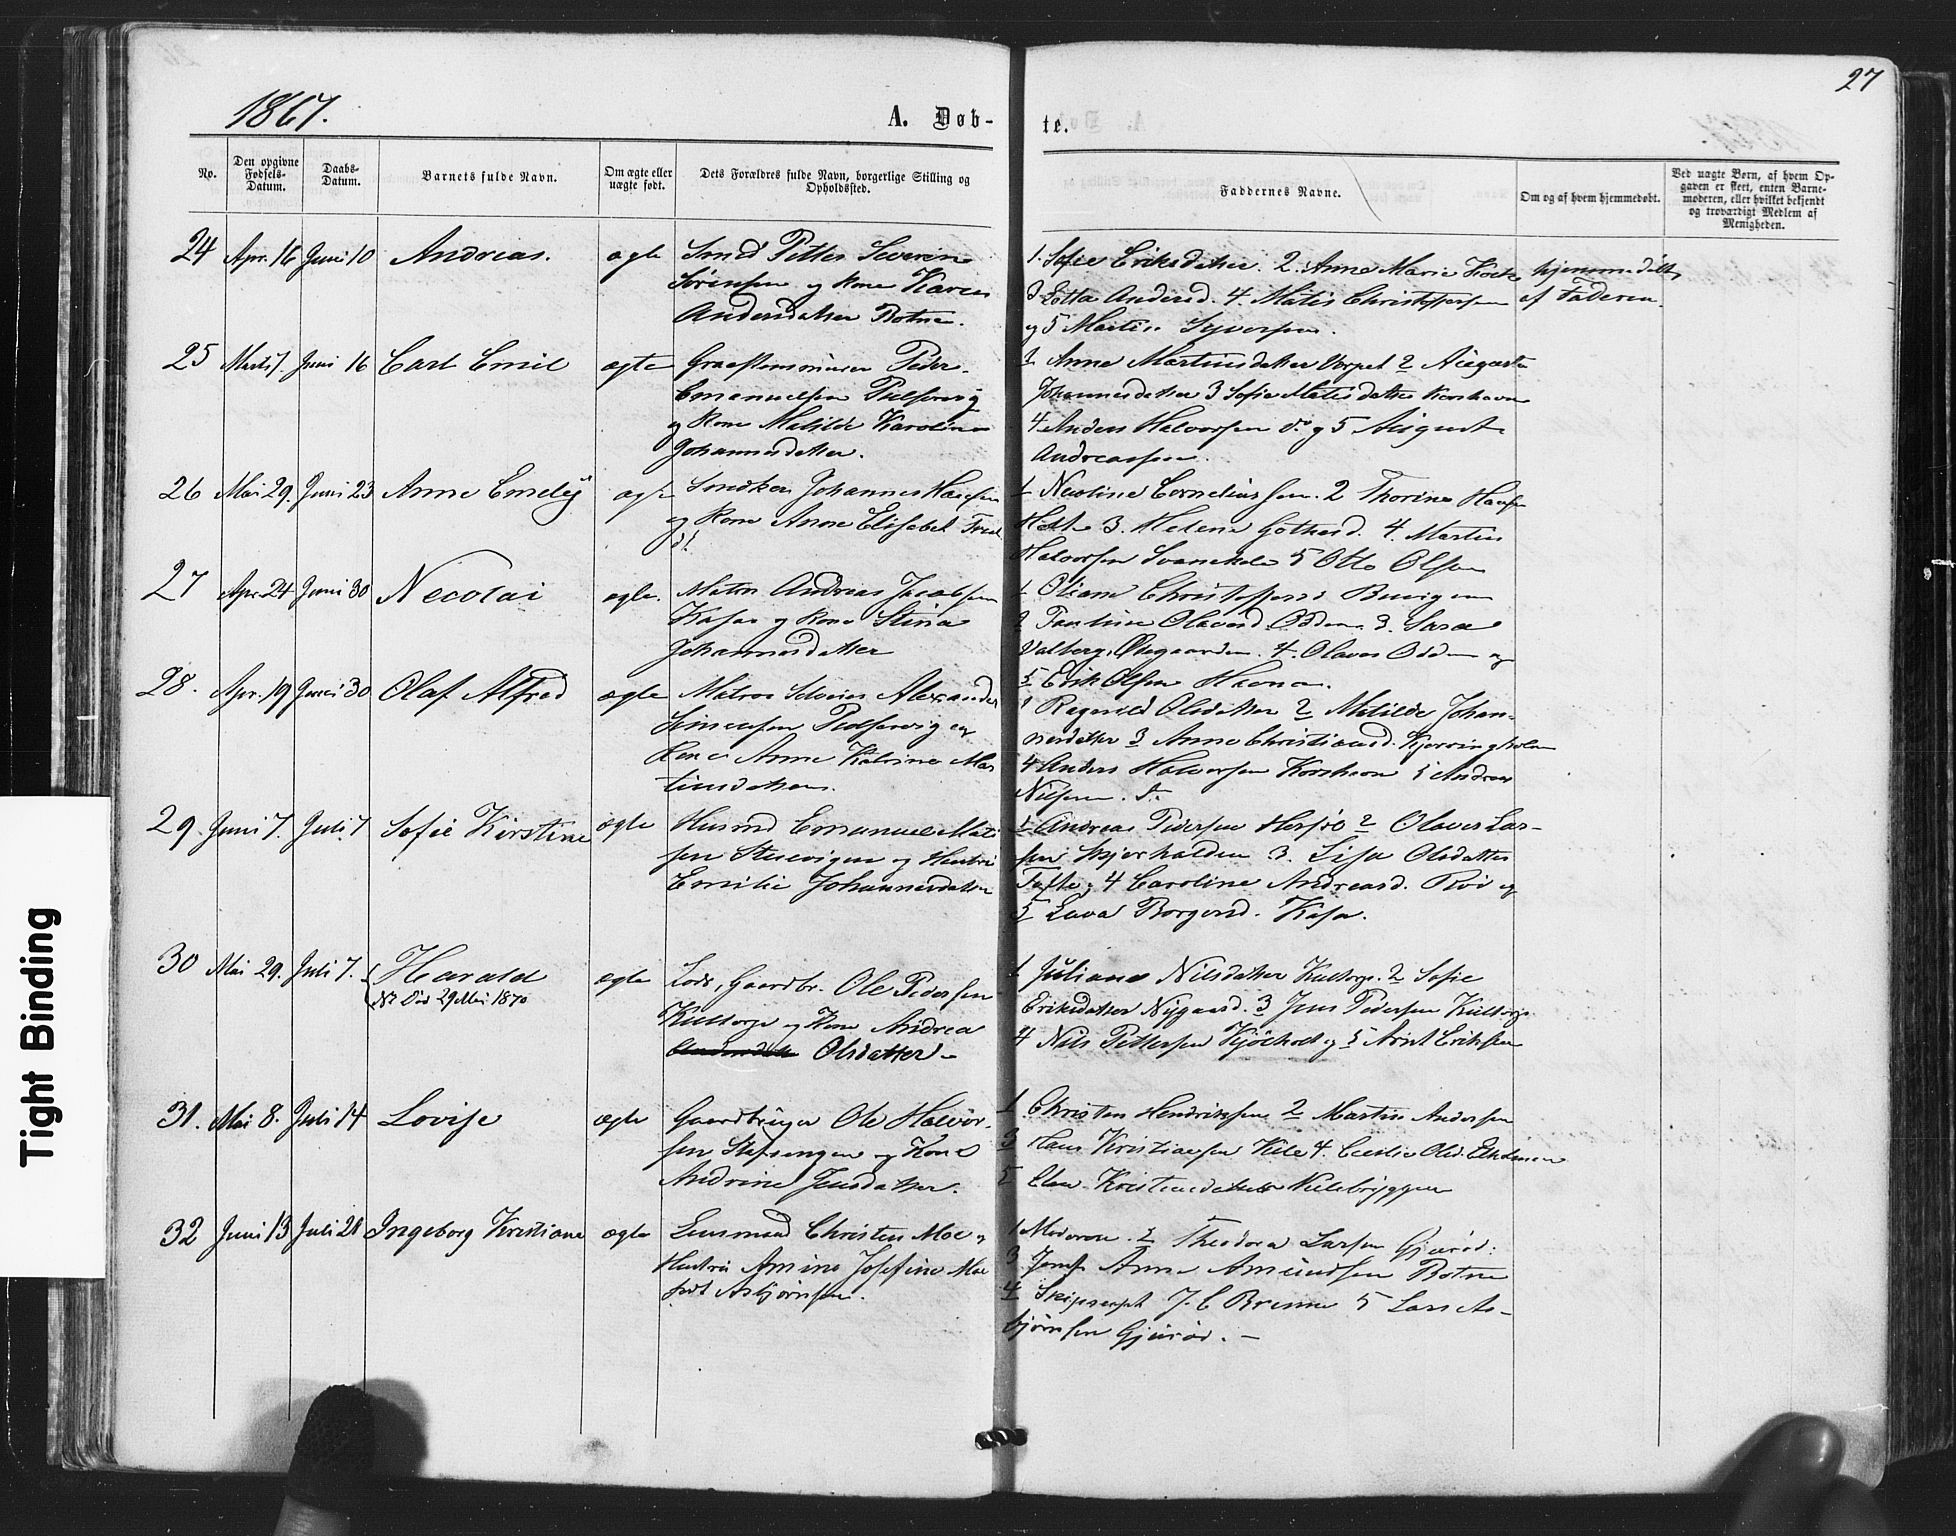 27
1867.
A. Døb-
te.
No.
Den opgivne Fødsels-Datum.
Daabs-Datum.
Barnets fulde Navn.
Om ægte eller uægte født.
Dets Forældres fulde Navn, borgerlige Stilling og Opholdssted.
Faddernes Navne.
Om og af hvem hjemmedøbt.
Ved uægte Børn, af hvem Op-
gaven er skeet, enten Barne-
moderen, eller hvilket bekjendt
og troværdigt Medlem af
Menigheden.
24 Apr. 16 Juni 10 Andreas. ægte Smed Petter Severin
Sørensen og Kone Karen
Andersdatter Botne.
1. Sofie Eriksdatter. 2. Anne Marie hjemmedøbt
3 Lotta Andersd. 4. Matis Christoffersen af Faderen
og 5 Martin Syversen.
25 Marts 7. Juni 16 Carl Emil ægte Peder
Emanuelsen
og Kone Matilde Karoline
Johannesdatter.
1 Anne Martinsdatter 2
Johannesdatter 3 Sofie Matisdatter Korshavn
4 Anders Halvorsen do og 5 August
Andreassen.
26 Mai 29. Juni 23 Anne Emely ægte Johannes Hansen
og Kone Anne Elisabet
1 Corneliussen. 2 Thorine Hansen
3. Helene 4. Martin
Halvorsen 5 Otto Olsen
27 Apr. 24 Juni 30 Necolai ægte. Matros Andreas Jacobsen
Kasa og Kone Stina
Johannesdatter
1 Christoffersd
2 Olavesd. Odden. 3. Sara
4. Olaves Odden og
5 Erik Olsen Havna.
28. Apr. 19 Juni 30 Olaf Alfred ægte Matros Alexander
og
Kone Anne Katrine Mar
tinsdatter.
1 Ragnild Olsdatter 2 Matilde Johan-
nesdatter 3 Anne Christiansd. Kjerringholmen
4 Anders Halvorsen Korshavn 5 Andreas
Nilsen. do
29. Juni 7. Juli 7 Sofie Kirstine ægte Husmd Emanuel Mati
sen og Hustru
Emilie Johannesdatter
1 Andreas Pedersen 2 Olaves Lar-
sen Skjærhalden 3. Lisa Olsdatter
Tofte, 4 Caroline Andreasd. Rød og
5 Lava Borgersd. Kasa.
30 Mai 29. Juli 7. Harald ægte Lods, Gaardbr. Ole Pedersen
Død 29 Mai 1870
og Kone Andrea
Olsdatter -
1 Juliane Nilsdatter 2 Sofie
Eriksdatter Nygaard. 3 Jens Pedersen
4 Nils Pettersen og 5 Arnt Eriksen
31. Mai 8. Juli 14 Lovise ægte Gaardbruger Ole Halvor-
sen og Kone
Andrine Jensdatter.
1 Christen Hendriksen 2 Martin Andersen
3 Hans Kristiansen Kile 4. Cecilie Olsd.
5 Elen Kristiansdatter
32 Juni 13 Juli 21 Ingeborg Kristiane ægte Lensmand Christen Moe og
Hustru Amine Josefine Moe
født Asbjørnsen.
1 Moderen. 2 Theodora Larsen
3 Jomf. Anne Amundsen Botne
4 J. C Bremer 5 Lars As-
bjørnsen -
Tight Binding